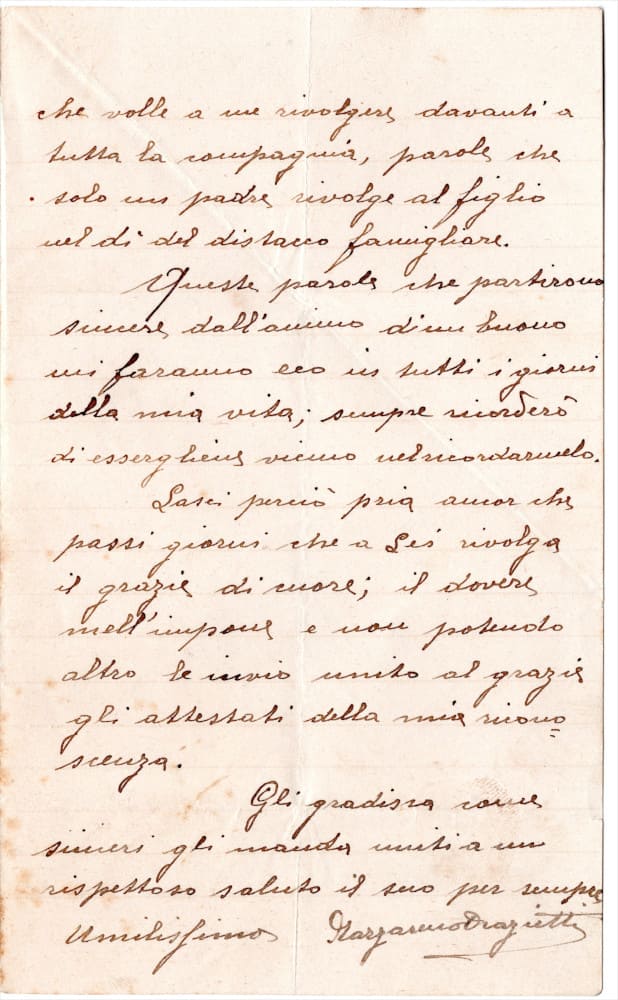 che volle a me rivolgere davanti a
tutta la compagnia, parole che
solo un padre rivolge al figlio
nel dì del distacco famigliare.
Queste parole che partirono
sincere dall'animo di un buono
mi faranno eco in tutti i giorni
della mia vita; sempre ricorderò
di essergliene vicino nel ricordarmelo.
Lasci perciò pria ancor che
passi giorni che a Lei rivolga
il grazie di cuore; il dovere
mell'impone e non potendo
altro le invio unito al grazie
gli attestati della mia ricono
scenza.
Gli gradisca come
sinceri gli manda uniti a un
rispettoso saluto il suo per sempre
Umilissimo